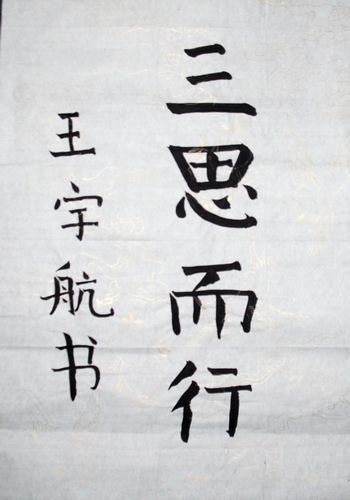 三思而行
王宇航书